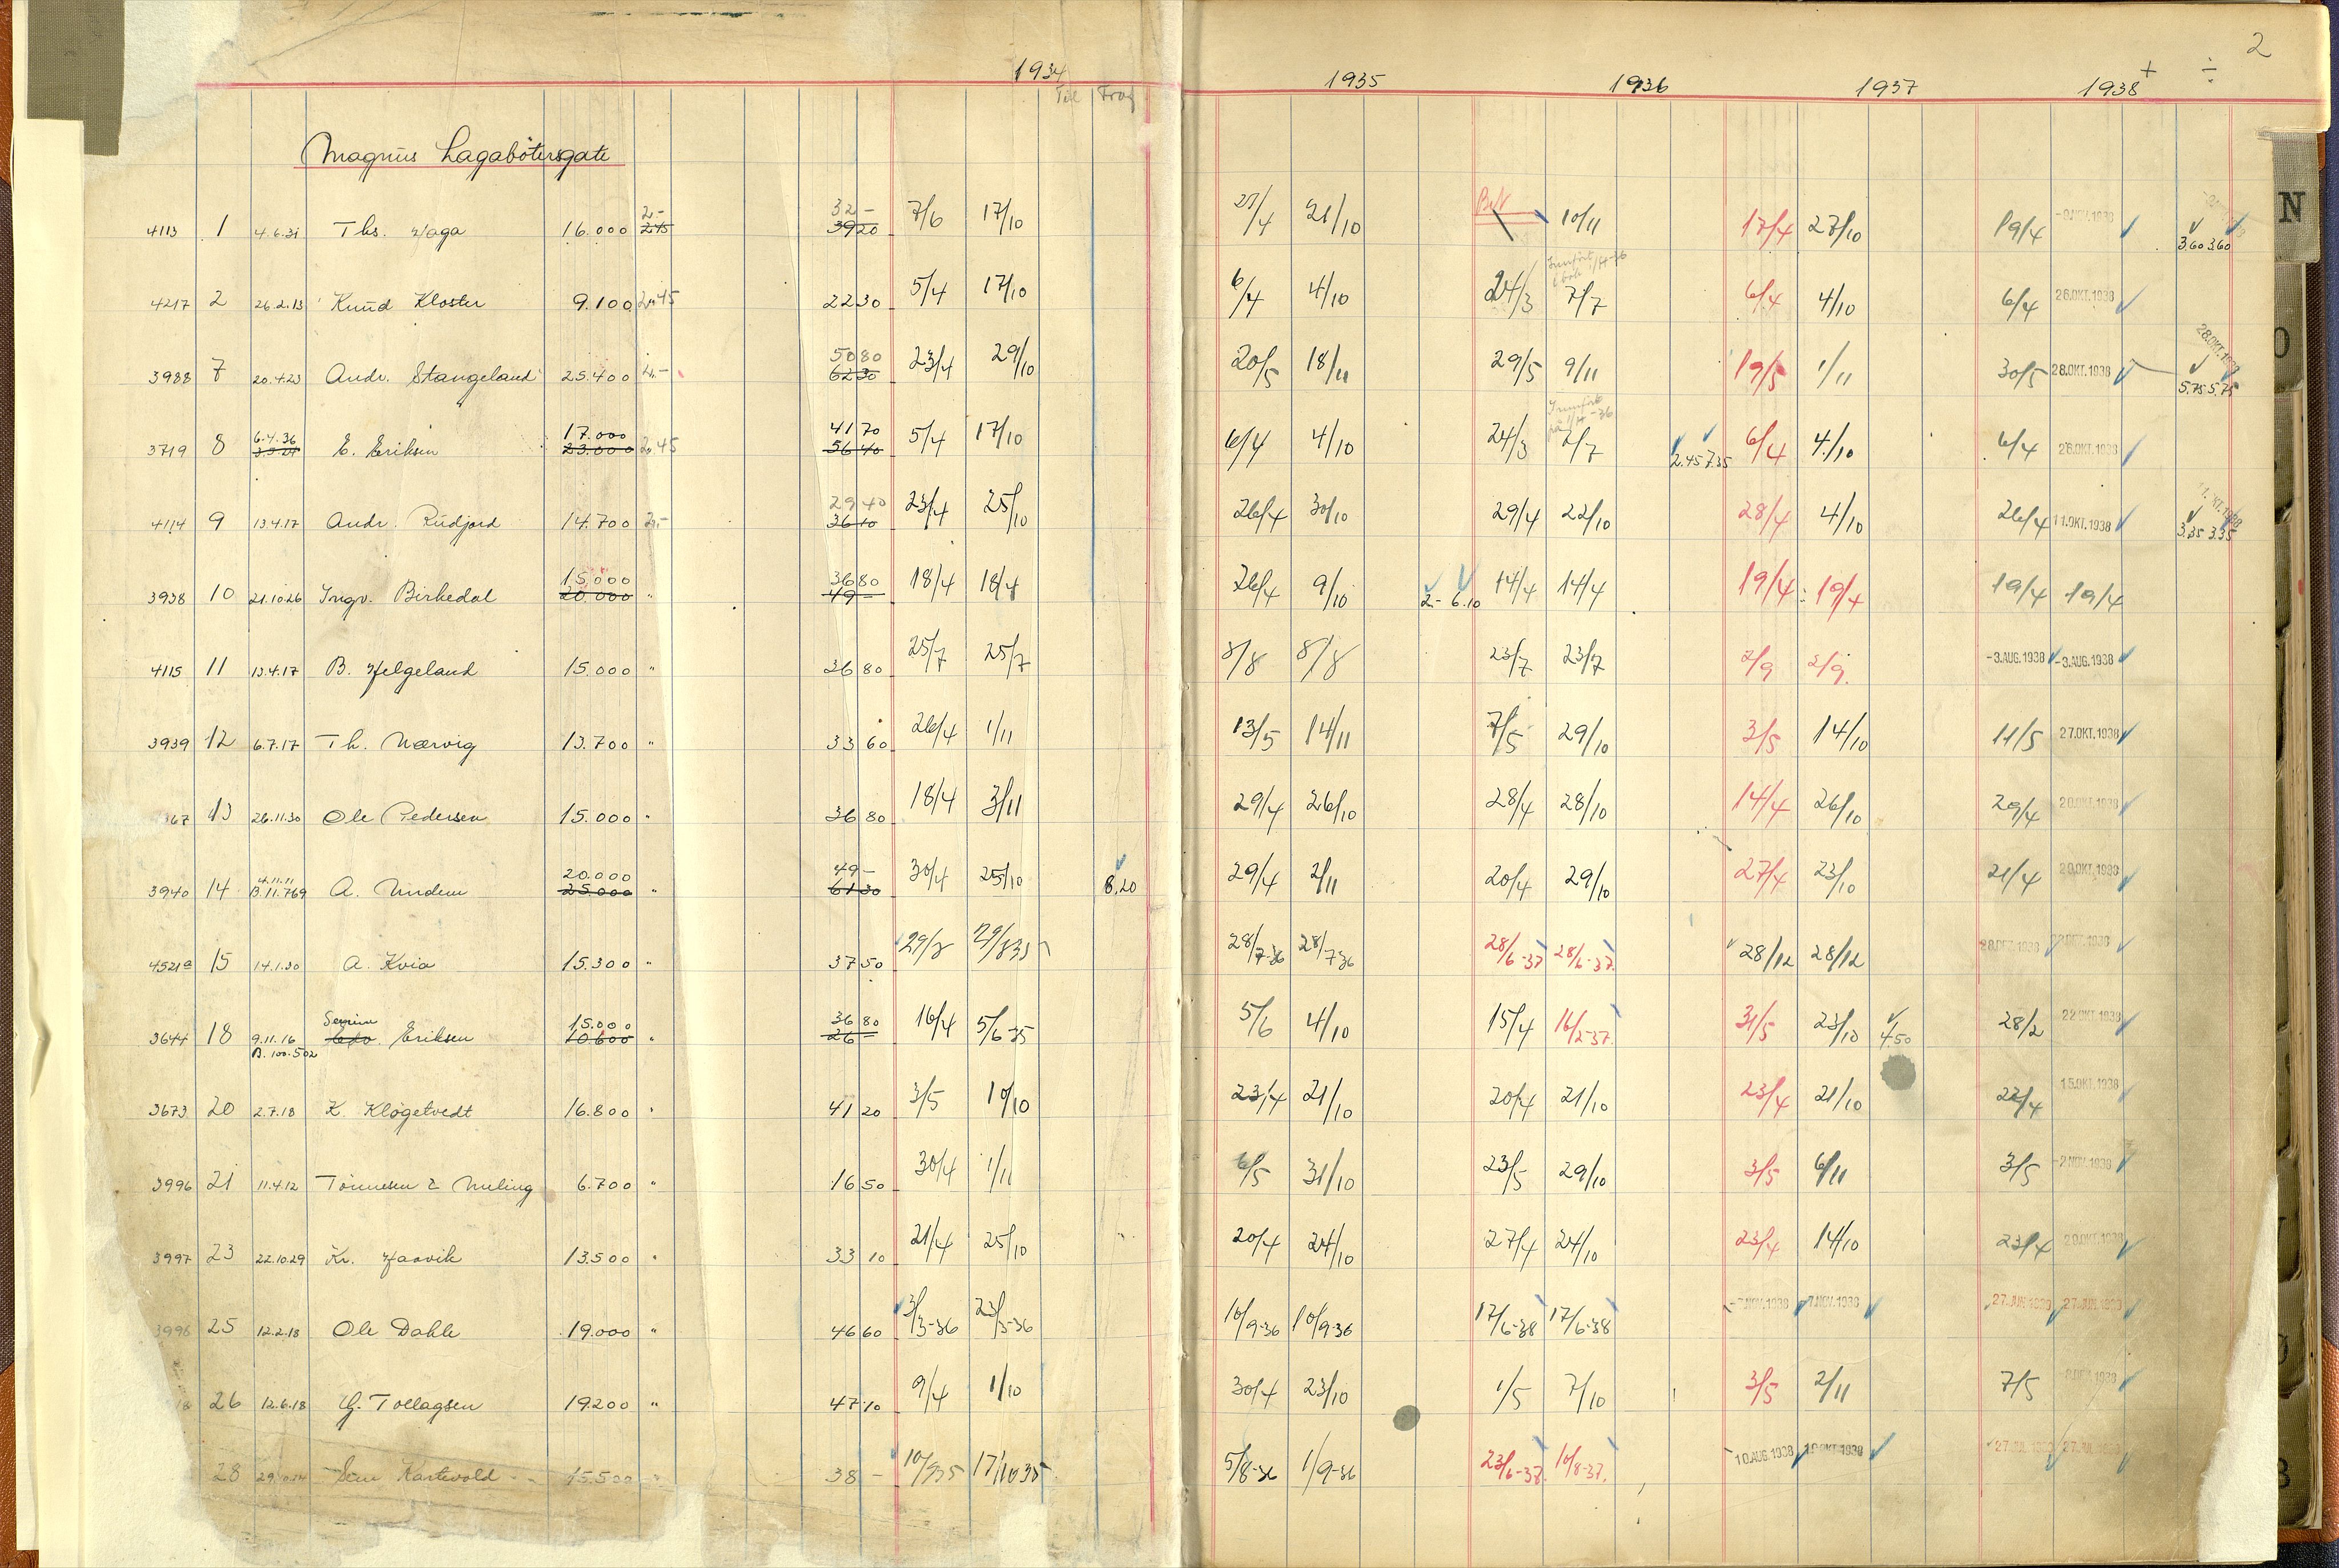 2
1934 1935 1936 1937 1938 + ÷
Til Frag
Magnus Lagabötersgate
2.- 32 -
4113 1 4.6.31 Ths. Haga 16.000 2.45 39 20 7/6 17/10 27/4 21/10 Bet 10/11 17/4 27/10 19/4 -9.NOV.1938 3.60 3.60
4217 2 26.2.13 Knud Kloster 9.100 2.45 22 30 5/4 17/10 6/4 4/10 24/3 7/7 6/4 4/10 6/4 26.OKT.1938
50 80 28.OKT.1938
3988 7 20.4.23 Andr. Stangeland 25.400 2.- 62 30 23/4 29/10 20/5 18/11 29/5 9/11 19/5 1/11 30/5 28.OKT.1938 5.75 5.75
6.4.36 17.000 41 70
3719 8 E. Eriksen 23.000 2.45 56 40 5/4 17/10 6/4 4/10 24/3 2/7 2.45 7.35 6/4 4/10 6/4 26.OKT.1938
29 40
4114 9 13.4.17 Andr. Rüdjord 14.700 2.- 36 10 23/4 25/10 26/4 30/10 29/4 22/10 28/4 4/10 26/4 11.OKT.1938 3.35 3.35
15.000 36 80
3938 10 21.10.26 Ingv. Birkedal 20.000 " 49 - 18/4 18/4 26/4 9/10 2.- 6.10 14/4 14/4 19/4 19/4 19/4 19/4
4115 11 13.4.17 B. Helgeland 15.000 " 36 80 25/7 25/7 8/8 8/8 23/7 23/7 2/9 2/9 -3.AUG.1938 -3.AUG.1938
3939 12 6.7.17 Th. Nærvig 13.700 " 33 60 26/4 1/11 13/5 14/11 7/5 29/10 3/5 14/10 11/5 27.OKT.1938
367 13 26.11.30 Ole Pedersen 15.000 " 36 80 18/4 3/11 29/4 26/10 28/4 28/10 14/4 26/10 29/4 20.OKT.1938
4.11.11 20.000 49 -
3940 14 B.11.769 A. Undem 25.000 " 61 30 30/4 25/10 8.20 29/4 2/11 20/4 29/10 27/4 23/10 21/4 20.OKT.1938
4521a 15 14.1.30 A. Kvia 15.300 " 37 50 29/8 29/8 35 28/7-36 28/7-36 28/6-37 28/6-37 28/12 28/12
Serine 15.000 36 80
3644 18 9.11.16 Eriksen 10.600 " 26 - 16/4 5/6-35 5/6 4/10 15/4 16/2-37 31/5 23/10 4.50 28/2 22.OKT.1938
B.100.502
3673 20 2.7.18 K. Kløgetvedt 16.800 " 41 20 3/5 10/10 23/4 21/10 20/4 21/10 23/4 21/10 22/4 15.OKT.1938
3996 21 11.4.12 Tönnesen & Meling 6.700 " 16 50 30/4 1/11 6/5 31/10 23/5 29/10 3/5 6/11 3/5 -2.NOV.1938
3997 23 22.10.29 Kr. Haavik 13.500 " 33 10 21/4 25/10 20/4 24/10 27/4 24/10 23/4 14/10 23/4 20.OKT.1938
3998 25 12.2.18 Ole Dahle 19.000 " 46 60 3/3-36 23/3-36 10/9-36 10/9-36 17/6-38 17/6-38 -7.NOV.1938 -7.NOV.1938
26 12.6.18 G. Tollagsen 19.200 " 47 10 9/4 1/10 30/4 23/10 1/5 7/10 3/5 2/11 7/5
28 Kartevold 15.500 38 - 10/9 35 17/10 35 5/8-36 1/9-36 23/6-37 10/8-37 10.AUG.1938